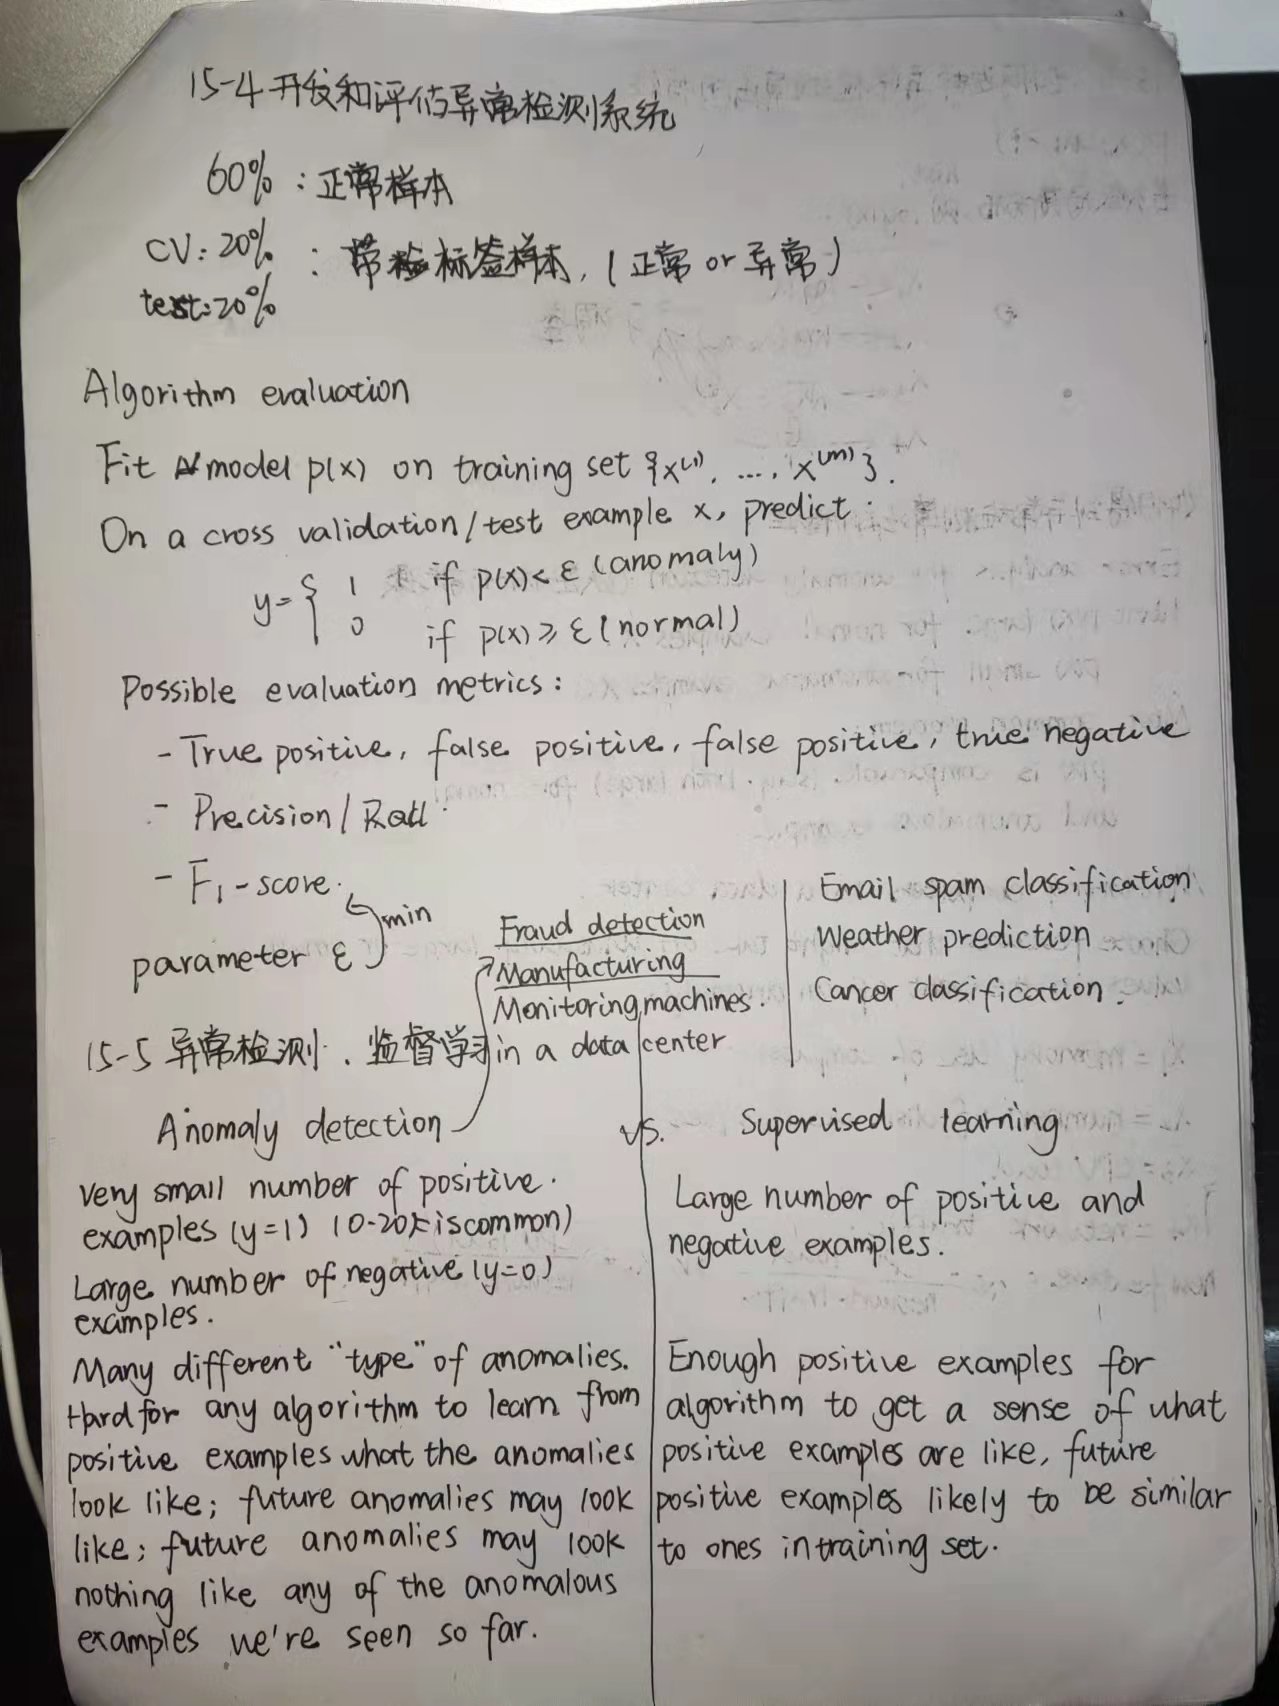 15-4 开发和评估异常检测系统
60%：正常样本
CV：20%
test：20%
：带标签样本，(正常 or 异常)
Algorithm evaluation
Fit model p(x) on training set {x⁽¹⁾, ..., x⁽ᵐ⁾}.
On a cross validation/test example x, predict:
y = { 1 if p(x) < ε (anomaly)
0 if p(x) ≥ ε (normal)
Possible evaluation metrics:
- True positive, false positive, false positive, true negative
- Precision/Recall
- F₁-score.
min
parameter ε
Fraud detection
Manufacturing
Monitoring machines.
in a data center
Email spam classification
Weather prediction
Cancer classification.
15-5 异常检测、监督学习
Anomaly detection vs. Supervised learning
Very small number of positive.
examples (y=1) (0-20 is common)
Large number of negative (y=0)
examples.
Many different "type" of anomalies.
Hard for any algorithm to learn from
positive examples what the anomalies
look like; future anomalies may look
like; future anomalies may look
nothing like any of the anomalous
examples we're seen so far.
Large number of positive and
negative examples.
Enough positive examples for
algorithm to get a sense of what
positive examples are like, future
positive examples likely to be similar
to ones in training set.